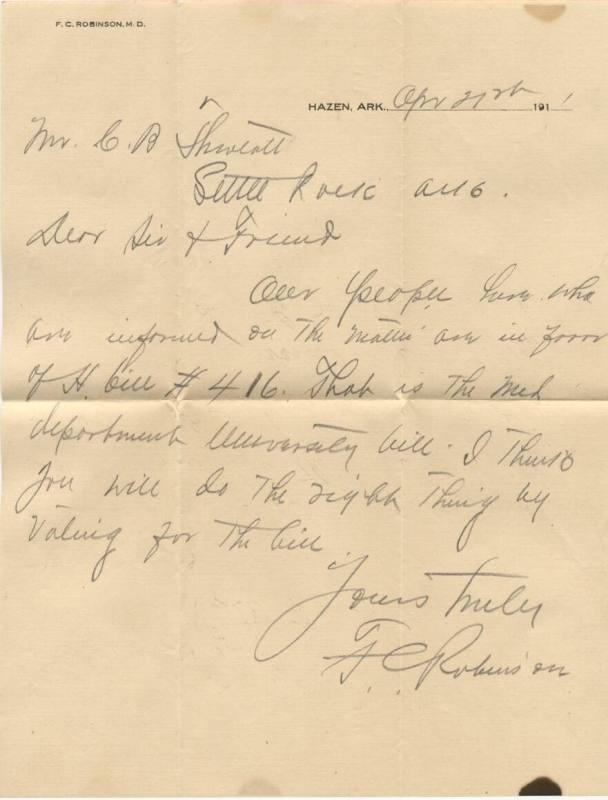 F. C. ROBINSON, M. D.
HAZEN, ARK., Apr 21st 1911
Mr. C. B
Little Rock Ark.
Dear Sir & Friend
Our People here who
are informed on the matter are in favor
of H. bill # 416. That is the Med
department University bill. I Think
you will do The right Thing by
Voting for The bill
Yours Truly
F. C. Robinson